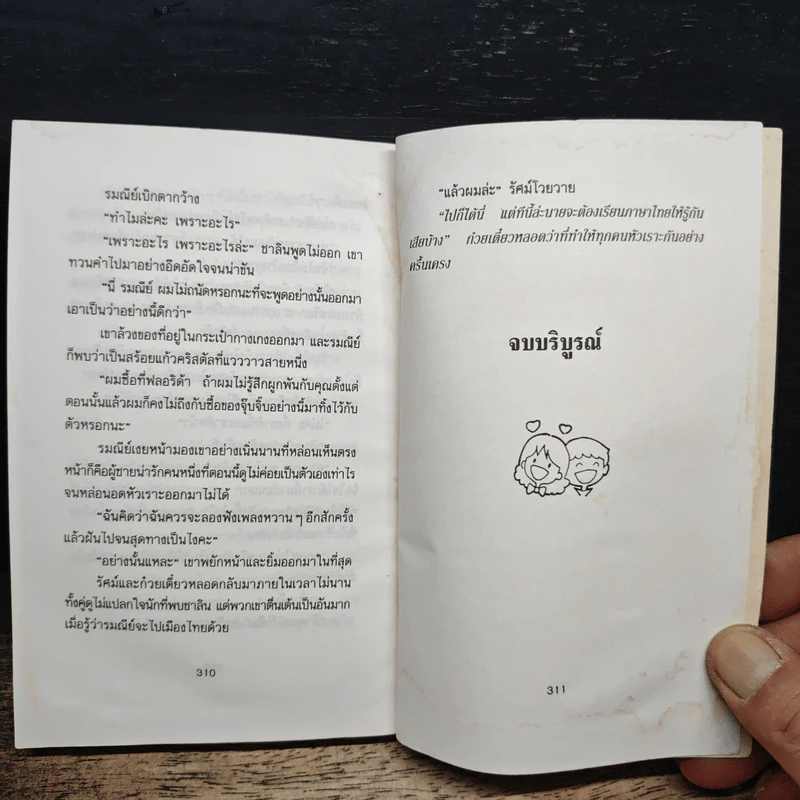 รมณีย์เบิกตากว้าง
"ทำไมล่ะคะ เพราะอะไร"
"เพราะอะไร เพราะอะไรล่ะ" ชาลินพูดไม่ออก เขา
ทวนคำไปมาอย่างอึดอัดใจจนน่าขัน
"นี่ รมณีย์ ผมไม่ถนัดหรอกนะที่จะพูดอย่างนั้นออกมา
เอาเป็นว่าอย่างนี้ดีกว่า"
เขาล้วงของที่อยู่ในกระเป๋ากางเกงออกมา และรมณีย์
ก็พบว่าเป็นสร้อยแก้วคริสตัลที่แวววาวสายหนึ่ง
"ผมซื้อที่ฟลอริด้า ถ้าผมไม่รู้สึกผูกพันกับคุณตั้งแต่
ตอนนั้นแล้วผมก็คงไม่ถึงกับซื้อของจุ๊บจิ๊บอย่างนี้มาทิ้งไว้กับ
ตัวหรอกนะ"
รมณีย์เงยหน้ามองเขาอย่างเนิ่นนานที่หล่อนเห็นตรง
หน้าก็คือผู้ชายน่ารักคนหนึ่งที่ตอนนี้ดูไม่ค่อยเป็นตัวเองเท่าไร
จนหล่อนอดหัวเราะออกมาไม่ได้
"ฉันคิดว่าฉันควรจะลองฟังเพลงหวาน ๆ อีกสักครั้ง
แล้วฝันไปจนสุดทางเป็นไงคะ"
"อย่างนั้นแหละ" เขาพยักหน้าและยิ้มออกมาในที่สุด
รัศม์และก๋วยเตี๋ยวหลอดกลับมาภายในเวลาไม่นาน
ทั้งคู่ดูไม่แปลกใจนักที่พบชาลิน แต่พวกเขาตื่นเต้นเป็นอันมาก
เมื่อรู้ว่ารมณีย์จะไปเมืองไทยด้วย
310
"แล้วผมล่ะ" รัศม์โวยวาย
"ไปก็ได้นี่ แต่ทีนี้ล่ะนายจะต้องเรียนภาษาไทยให้รู้กัน
เสียบ้าง" ก๋วยเตี๋ยวหลอดว่าที่ทำให้ทุกคนหัวเราะกันอย่าง
ครื้นเครง
จบบริบูรณ์
311